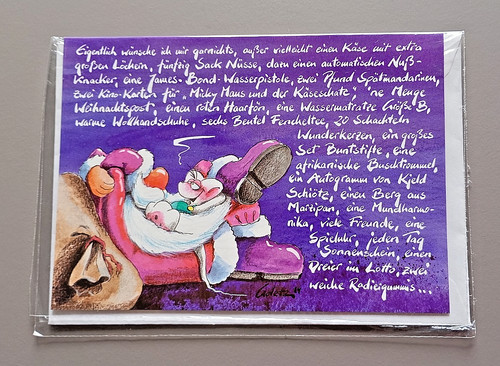 Eigentlich wünsche ich mir garnichts, außer vielleicht einen Käse mit extra
großen Löchern, fünfzig Sack Nüsse, dazu einen automatischen Nuß-
Knacker, eine James-Bond-Wasserpistole, zwei Pfund Spätmandarinen,
zwei Kino-Karten für "Micky Maus und der Käseschatz", 'ne Menge
Weihnachtspost, einen roten Haarfön, eine Wassermatratze Größe B,
warme Wollhandschuhe, sechs Beutel Fencheltee, 20 Schachteln
Wunderkerzen, ein großes
Set Buntstifte, eine
afrikanische Buschtrommel,
ein Autogramm von Kjeld
Schiötz, einen Berg aus
Marzipan, eine Mundharmo-
nika, viele Freunde, eine
Spieluhr, jeden Tag
Sonnenschein, einen
Dreier im Lotto, zwei
weiche Radiergummis...